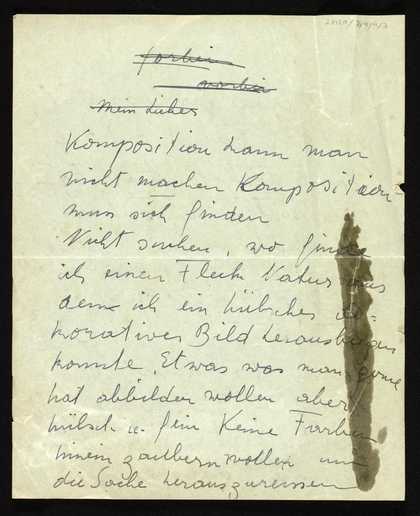 vorbei
vorbei
Mein Lieber
Komposition kann man
nicht machen Komposition
muss sich finden
Nicht suchen, wo finde
ich einen Fleck Natur aus
dem ich ein hübsches de-
koratives Bild herausbringen
konnte. Etwas was man gerne
hat abbilden wollen aber
hübsch u. fein Keine Farben
hinein zaubern wollen um
die Sache herauszureissen